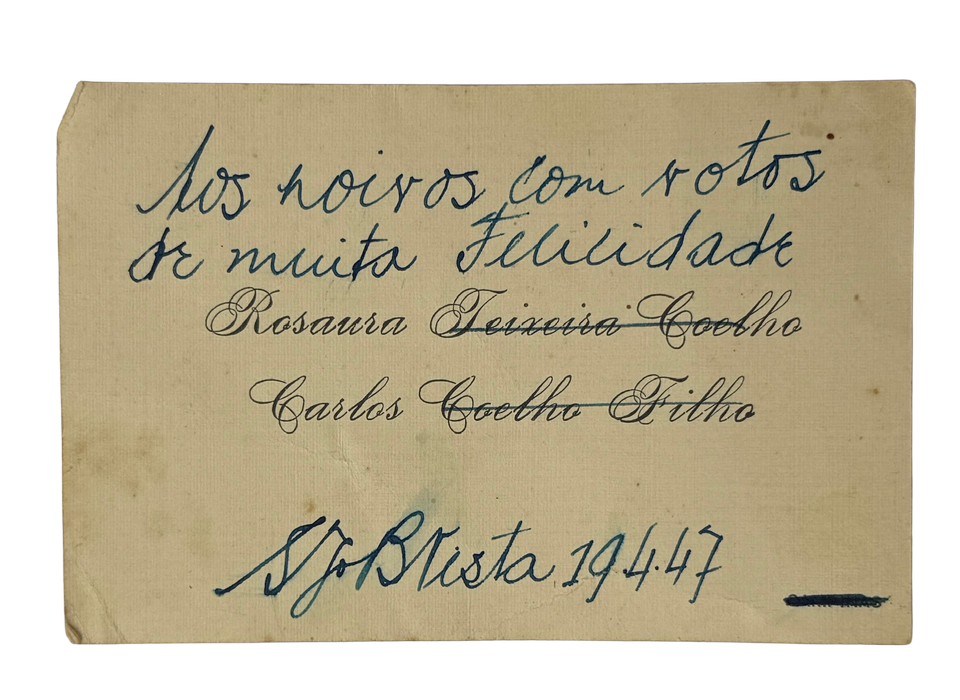 Aos noivos com votos
de muita Felicidade
Rosaura Teixeira Coelho
Carlos Coelho Filho
S Jo B Vista 19.4.47